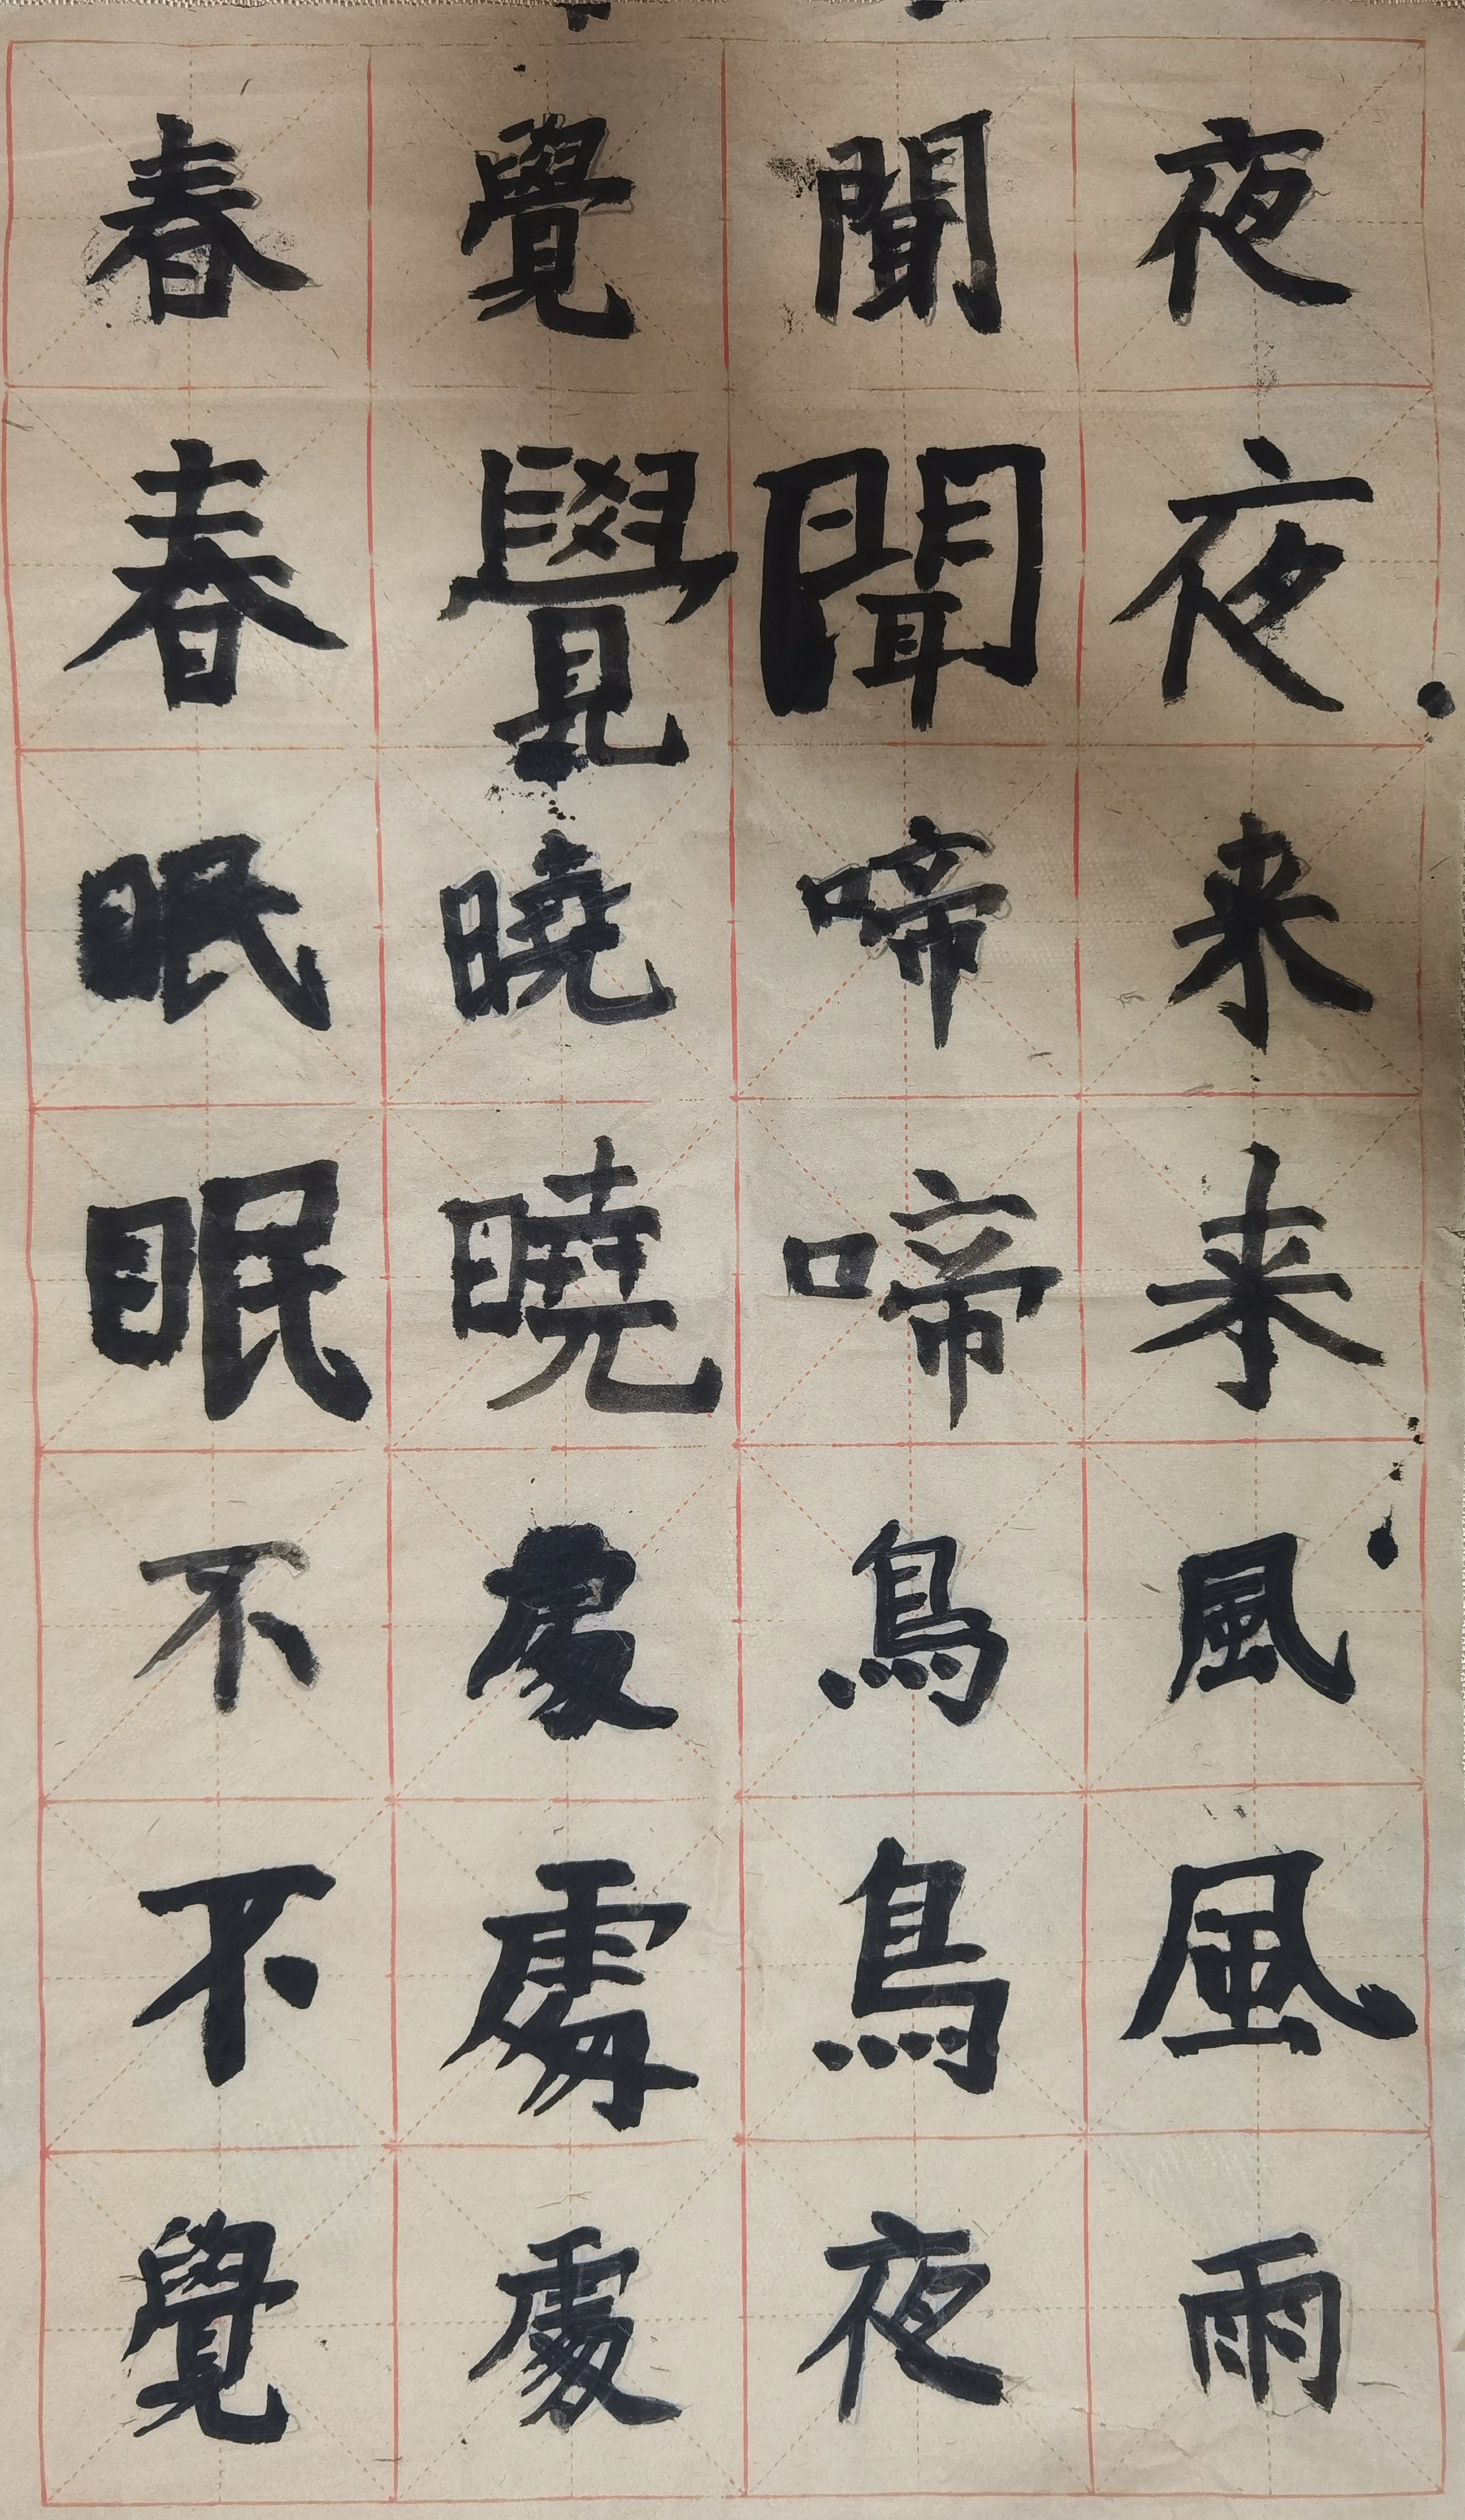 春春眠眠不不覺
覺覺曉曉處處處
聞聞啼啼鳥鳥夜
夜夜来来風風雨